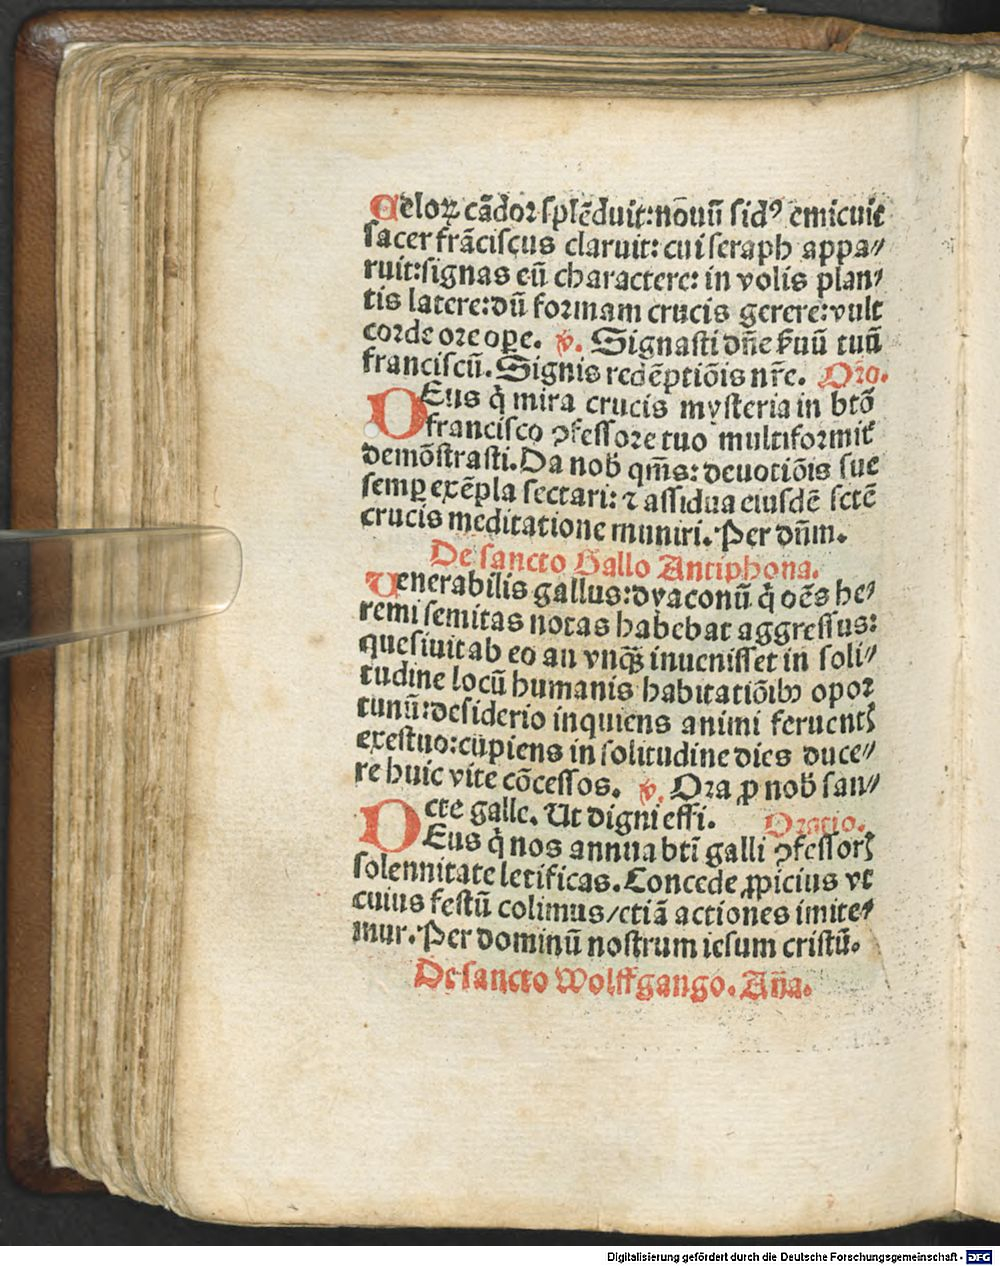 Celoꝝ cādor splēduit: nouū sidꝰ emicuit
sacer frāciscus claruit: cui seraph appa⸗
ruit: signas eū charactere: in volis plan⸗
tis latere: dū formam crucis gerere: vult
corde ore oꝑe. ℣. Signasti dn̄e ẜuū tuū
franciscū. Signis redēptiōis nr̄e. Oro.
DEus q̇ mira crucis mysteria in btō
francisco ꝯfessore tuo multiformit̉
demōstrasti. Da nob̄ qm̄s: deuotiōis sue
semꝑ exēpla sectari: ⁊ assidua eiusdē sctē
crucis meditatione muniri. Per dn̄m.
De sancto Gallo Antiphona.
Venerabilis gallus: dyaconū q̇ oēs he⸗
remi semitas notas habebat aggressus:
quesiuit ab eo an vnq̄ꝫ inuenisset in soli⸗
tudine locū humanis habitatiōibꝰ opor
tunū: desiderio inquiens animi feruentꝭ
exestuo: cupiens in solitudine dies duce⸗
re huic vite cōcessos. ℣. Ora ꝓ nob̄ san⸗
cte galle. Ut digni effi. Oratio.
DEus q̇ nos annua btī galli ꝯfessorꝭ
solennitate letificas. Concede ꝓpicius vt
cuius festū colimus/etiā actiones imite⸗
mur. Per dominū nostrum iesum cristū.
De sancto Wolffgango. Añа.
Digitalisierung gefördert durch die Deutsche Forschungsgemeinschaft - DFG